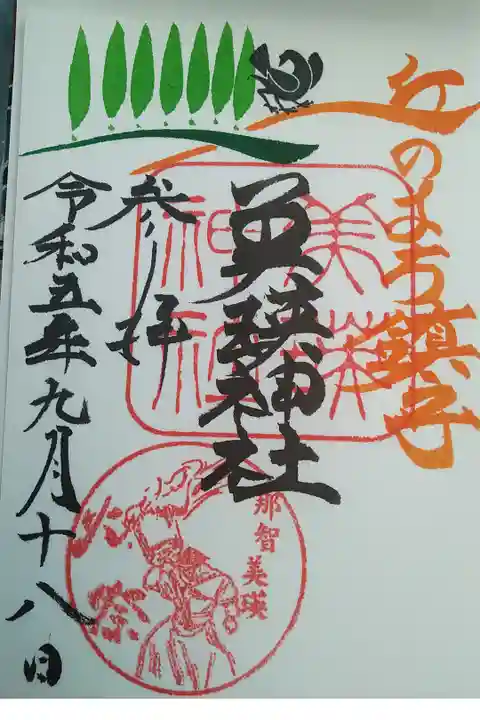 丘のまち鎮守
美瑛神社
美瑛神社
参拝
令和五年九月十八日
那智美瑛